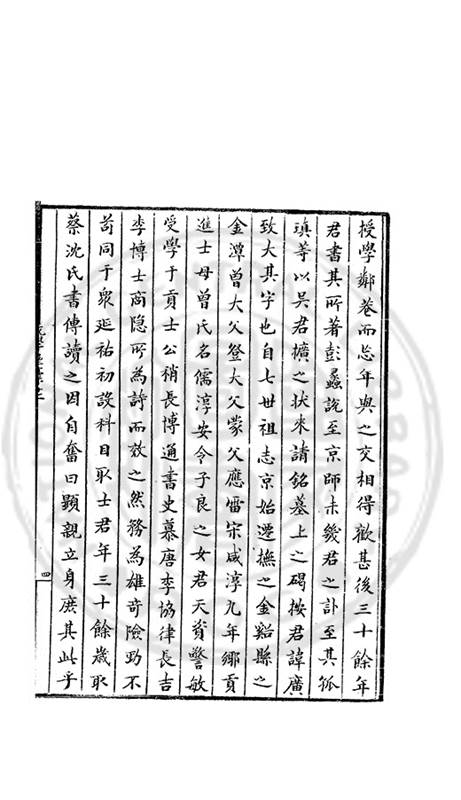 授學鄰巷而忘年與之交相得歡甚後三十餘年
君書其所著彭蠡說至京師未幾君之訃至其孤
瑱等以吳君擴之狀來請銘墓上之碣按君諱廣
致大其字也自七世祖志京始遷撫之金谿縣之
金潭曾大父登大父蒙父應雷宋咸淳九年鄉貢
進士母曾氏名儒淳安令子良之女君天資警敏
受學于貢士公稍長博通書史慕唐李協律長吉
李博士商隱所為詩而效之然務為雄奇險勁不
苟同于衆延祐初設科目取士君年三十餘歲取
蔡沈氏書傳讀之因自奮曰顯親立身庶其此乎
四